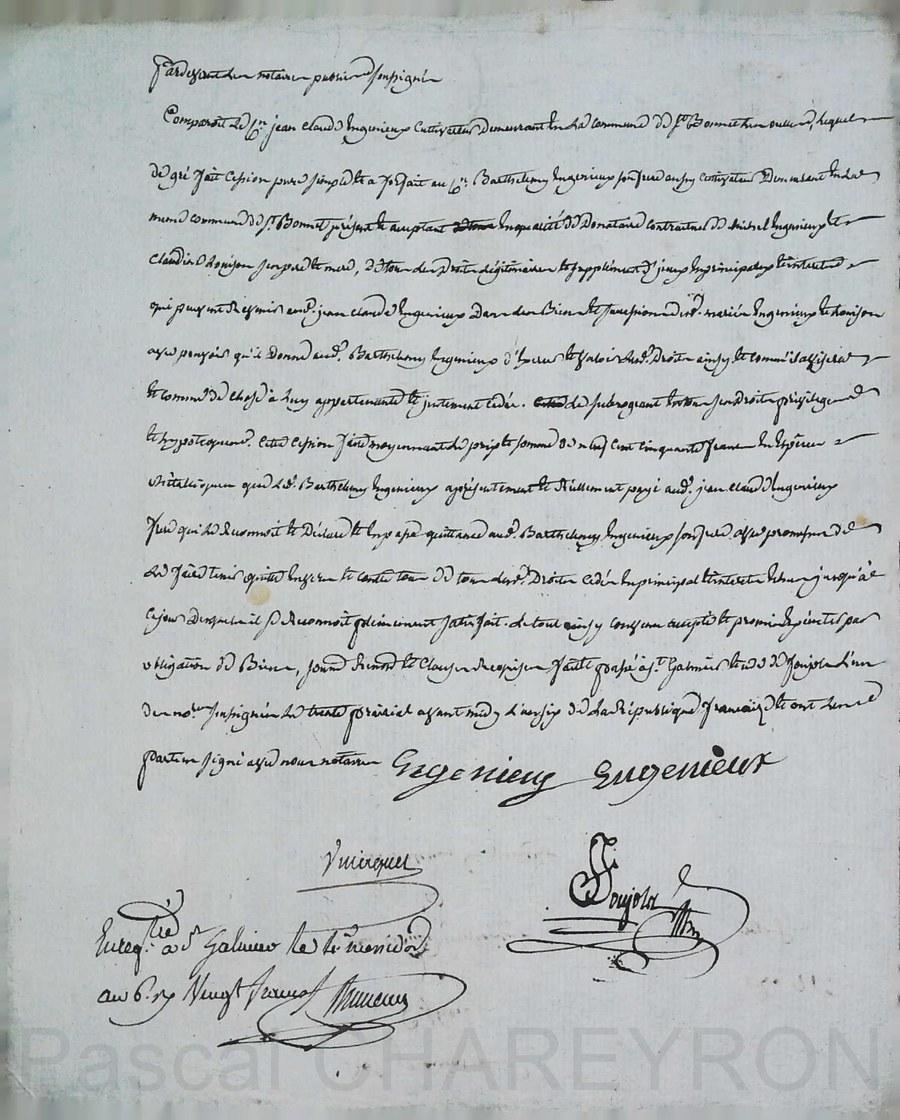 Pardevant les notaires publics soussignés
Comparoit le Cn. jean claude Ingenieux Cultivateur demeurant en la commune de st. Bonnet les oulles, lequel
de gré fait cession pure simple et a forfait au Cn. Barthelemy Ingenieux son frere aussy cultivateur Demeurant en la
meme commune de st. Bonnet présent et acceptant en qualité de Donataire contractuel de michel Ingenieux et
Claudine Louison ses pere et mere, de tous les Droits légitimaires et supplément d'iceux en principaux et interets
qui peuvent Revenir aud. jean claude Ingenieux Dans les Biens et succession desd. mariés Ingenieux et Louison
avec pouvoir qu'il Donne aud. Barthelemy Ingenieux d'exercer et valoir lesd. Droits ainsy et comme il avisera
et comme de chose à luy appartenante et justement cédée. le subrogeant en tous ses droits privileges
et hypoteques. Cette cession faite moyennant le prix et somme de neuf cent cinquante francs en Espèces
métalliques que led. Barthelemy Ingenieux a présentement et Réellement payé aud. jean claude Ingenieux
frere qui le Reconnoit et Déclare et en passe quittance aud. Barthelemy Ingenieux son frere avec promesse de
le faire tenir quitte envers et contre tous de tous lesd. Droits cédés en principal et interets échus jusqu'à
ce jour Desquels il se Reconnoit pleinement satisfait. Le tout ainsy convenu accepté et promis Exécuter par
obligation de Biens, soumis Renoncé et Clauses Requises fait et passé à st. Galmier étude de Joujola L'un
des nores. soussignés le trente prairial avant midy L'an six de la République francaise et ont lesd.
parties signé avec nous notaires Ingenieux Engenieux
Vmirquet
Joujola
Enreg. tré a st Galmier le 1er messidor
an 6. rx Vingt francs
Pascal CHAREYRON